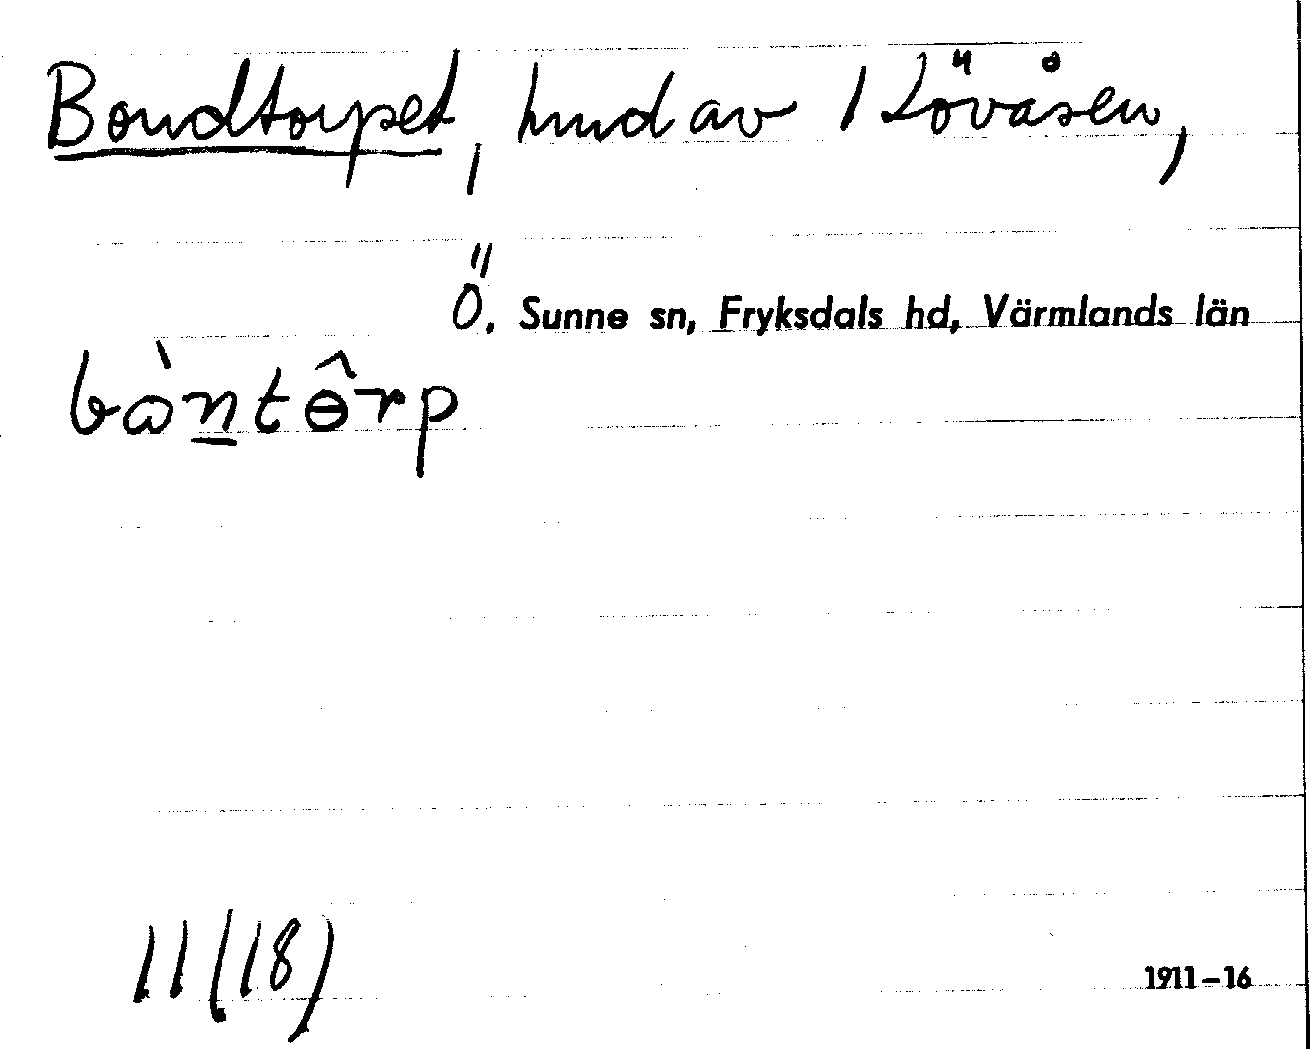 Bondtorpet, hmd av 1 Lövåsen,
Ö. Sunne sn, Fryksdals hd, Värmlands län
bὼn̲tɵ̂rp
11 (18)
1911–16